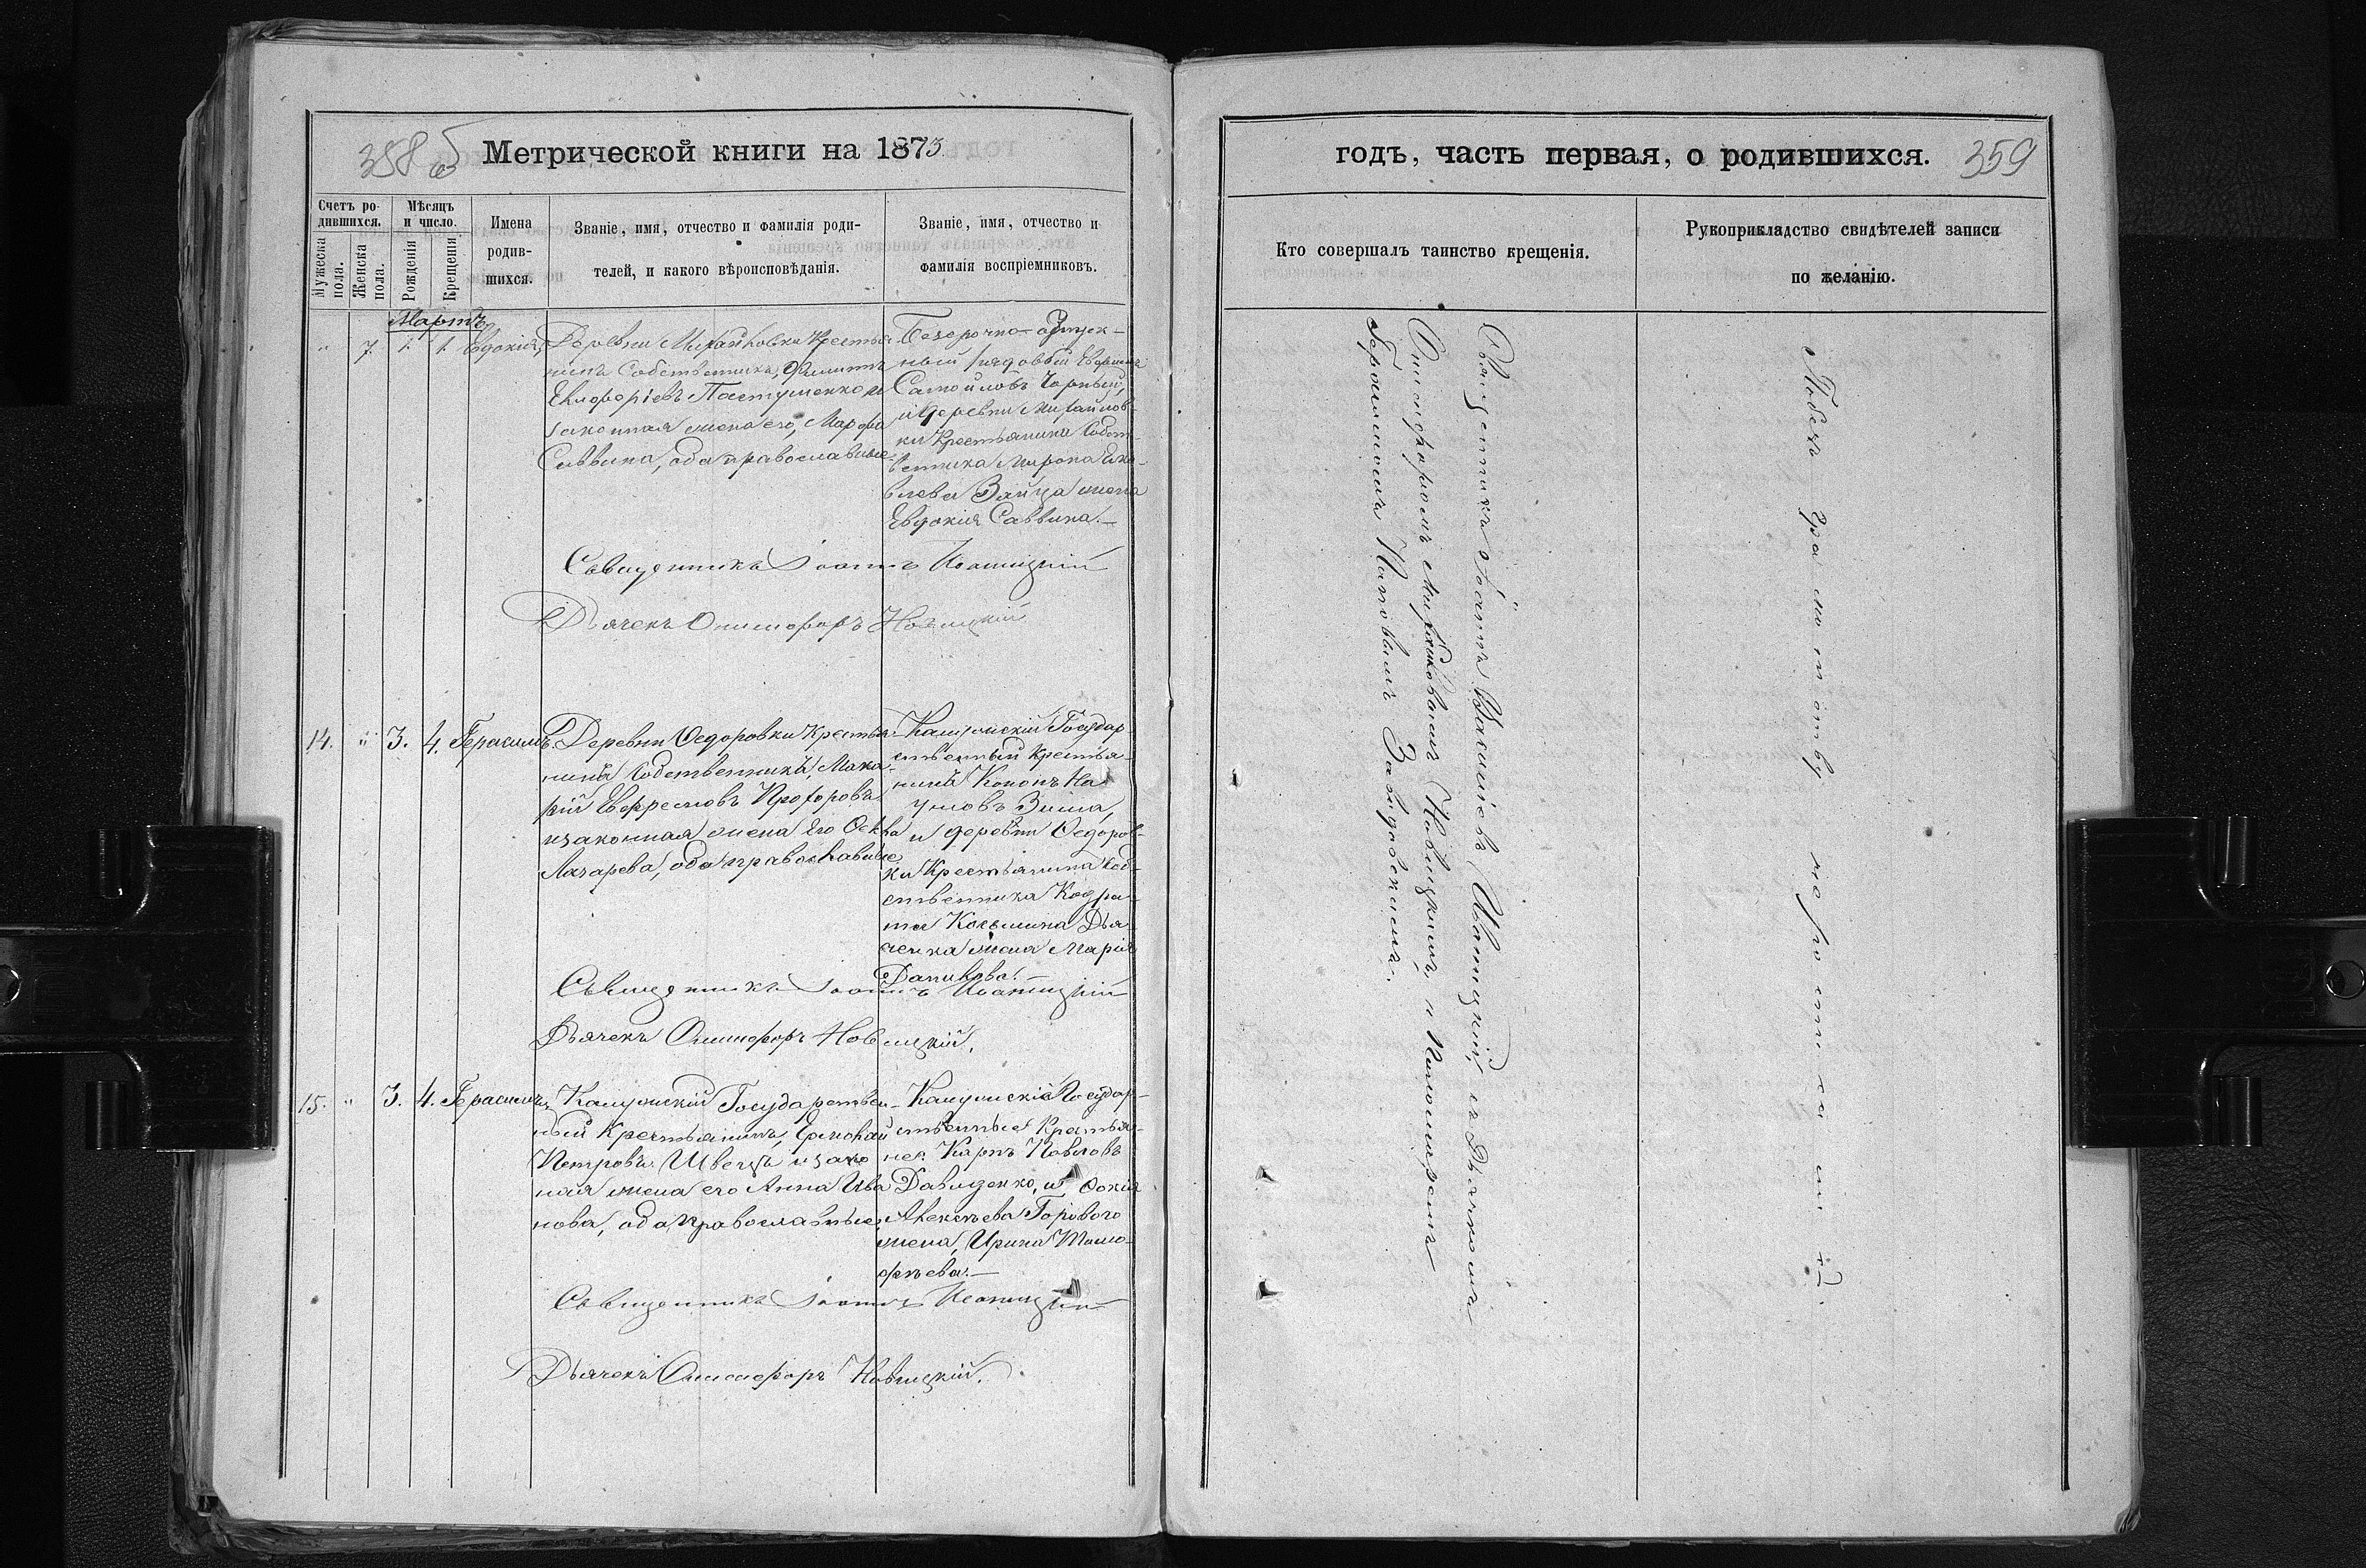 358 об
Метрической книги на 1873
Счетъ ро-
дившихся.
Мѣсяцъ
и число.
Имена
родив-
шихся.
Званіе, имя, отчество и фамилія роди-
телей, и какого вѣроисповѣданія.
Званіе, имя, отчество и
фамилія воспріемниковъ.
Мужеска
пола.
Женска
пола.
Рожденія
Крещенія
Мартъ
" 7. 1. 1. Евдокія,
Деревни Михайловки Крестья-
нинъ Собственникъ, Филиппъ
Пастушенко и
законная жена его, Марфа
Саввина, оба православные
Безсрочно-отпуск-
ный рядовый
Самойловъ Чорный,
и деревни Михайлов-
ки Крестьянина Собст-
венника Мирона Яко-
влева Зайца жена
Евдокія Саввина.—
Священникъ Іоаннъ Иваницкій
Дьячекъ Онисифоръ Новицкій
14. " 3. 4. Герасимъ.
Деревни Ѳедоровки Крестья-
нинъ Собственникъ, Мака-
рій Евфремовъ Прохоровъ
и законная жена его
Лазарева, оба православные
Государ-
ственный Крестья-
нинъ Кононъ На-
умовъ Зима,
и деревни Ѳедоров-
ки Крестьянина Соб-
ственника Кодра-
та Козьмина Дья-
ченка жена Марія
Данилова.
Священникъ Іоаннъ Иваницкій
Дьячекъ Онисифоръ Новицкій.
15. " 3. 4. Герасимъ,
Государствен-
ный Крестьянинъ, Ермолай
Петровъ Швецъ и закон
ная жена его Анна Ива
нова, оба православные
Государ-
ственные Крестья-
не: Карпъ Павловъ
Давиденко, и Фокія
Алексѣева Горового
жена, Ирина Тимо-
фѣева.—
Священникъ Іоаннъ Иваницкій
Дьячекъ Онисифоръ Новицкій.
годъ, часть первая, о родившихся.
359
Кто совершалъ таинство крещенія.
Рукоприкладство свидѣтелей записи
по желанію.
Священникъ Іоаннъ Василіевъ Иваницкій, съ Дьячкомъ
Онисифоромъ Михайловымъ Новицкимъ, и Пономаремъ
Герасимомъ Завидовскимъ.